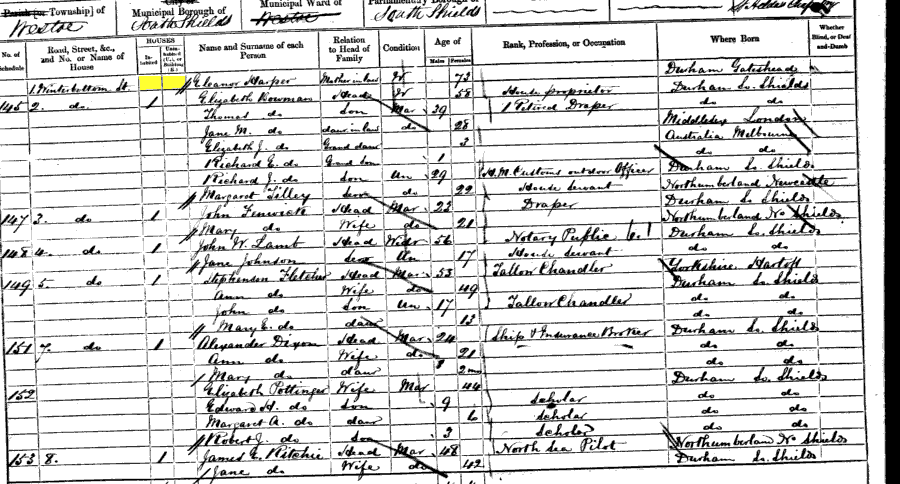 Parish [or Township] of Municipal Borough of Municipal Ward of Parliamentary Borough of
Westoe South Shields Westoe South Shields
No. of Schedule Road, Street, &c., and No. or Name of House HOUSES Inhabited Uninhabited (U.), or Building (B.) Name and Surname of each Person Relation to Head of Family Condition Age of Males Females Rank, Profession, or Occupation Where Born Whether Blind, or Deaf-and-Dumb
1 Winterbottom St. Eleanor Harper Mother in law Wr 73 Durham Gateshead
145 2. do 1 Elizabeth Bowman Head Wr 58 House proprietor Durham So. Shields
Thomas do Son Mar 29 Retired Draper do do
Jane M. do daur in law do 28 Middlesex London
Elizabeth J. do Grand daur 3 Australia Melbourne
Richard E. do Grand Son 1 do do
Richard J. do Son Un 29 H.M. Customs outdoor Officer Durham So. Shields
Margaret Tilley Serv do 22 House Servant Northumberland Newcastle
147 3. do 1 John Fenwick Head Mar 23 Draper Durham So Shields
Mary do Wife do 21 Northumberland No Shields
148 4. do 1 John W. Lamb Head Widr 56 Notary Public Durham So. Shields
Jane Johnson Serv Un 17 House Servant do do
149 5. do 1 Stephenson Fletcher Head Mar 53 Tallow Chandler Yorkshire
Ann do Wife do 49 Durham So. Shields
John do Son Un 17 Tallow Chandler do do
Mary E. do daur 13 do do
151 7. do 1 Alexander Dixon Head Mar 24 Ship & Insurance Broker Durham So. Shields
Ann do Wife do 21 do do
Mary do daur 2 mo do do
152 Elizabeth Pottinger Wife Mar 44 Durham So. Shields
Edward H. do Son 9 Scholar do do
Margaret A. do daur 6 Scholar do do
Robert J. do Son 3 Scholar do do
153 8. 1 James E. Ritchie Head Mar 48 North Sea Pilot Northumberland No Shields
Jane do Wife do 42 Durham So. Shields